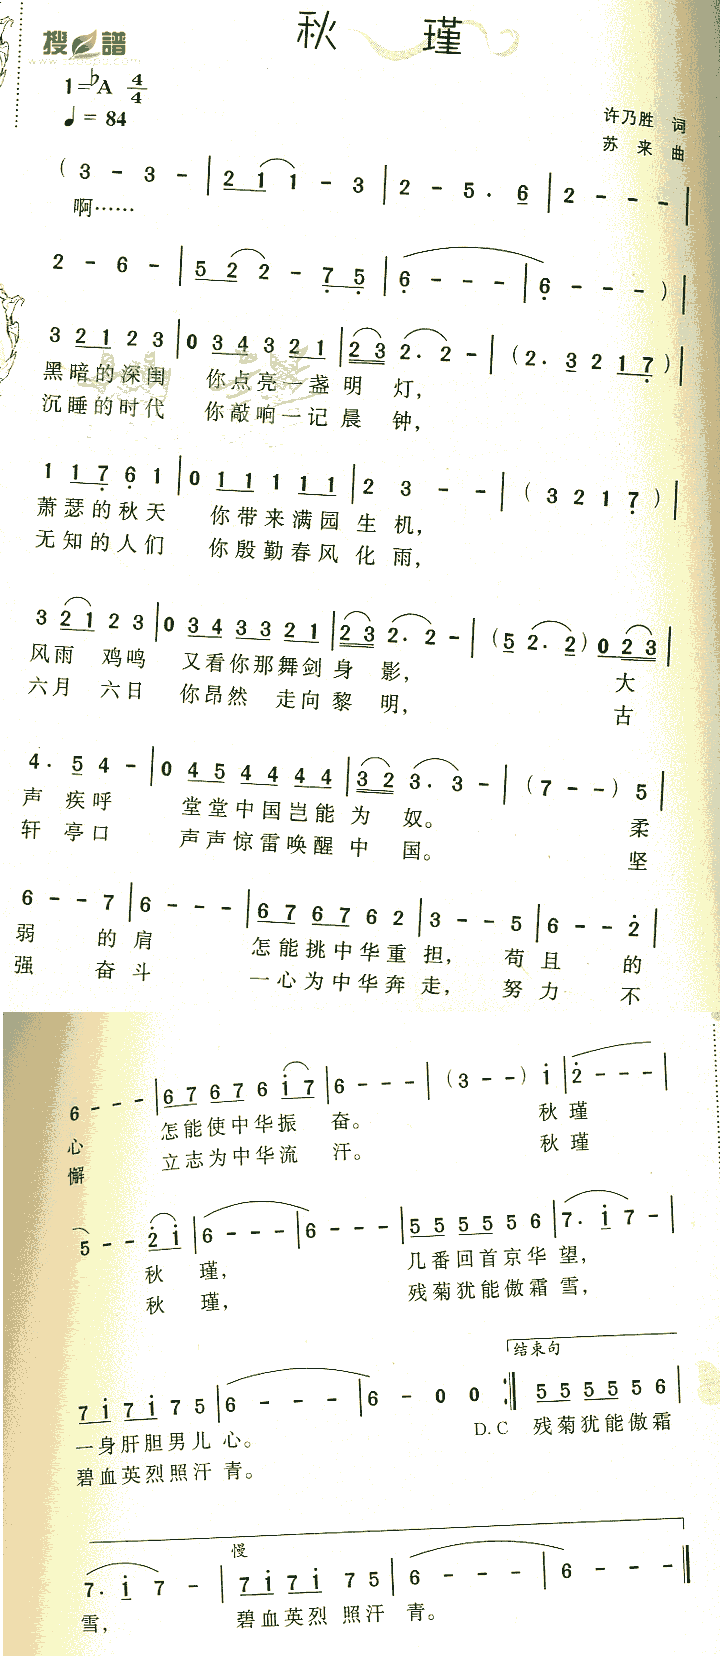 搜谱
秋 瑾
1=♭A 4/4
♩= 84
许乃胜 词
苏 来 曲
( 3 - 3 - | 2 1 1 - 3 | 2 - 5 . 6 | 2 - - - |
啊……
2 - 6 - | 5 2 2 - 7 5 | 6 - - - | 6 - - - ) |
3 2 1 2 3 | 0 3 4 3 2 1 | 2 3 2 . 2 - | ( 2 . 3 2 1 7 ) |
黑暗的深闺 你点亮一盏明 灯，
沉睡的时代 你敲响一记晨 钟，
1 1 7 6 1 | 0 1 1 1 1 1 | 2 3 - - | ( 3 2 1 7 ) |
萧瑟的秋天 你带来满园生 机，
无知的人们 你殷勤春风化 雨，
3 2 1 2 3 | 0 3 4 3 3 2 1 | 2 3 2 . 2 - | ( 5 2 . 2 ) 0 2 3 |
风雨 鸡鸣 又看你那舞剑身 影， 大
六月 六日 你昂然 走向黎 明， 古
4 . 5 4 - | 0 4 5 4 4 4 4 | 3 2 3 . 3 - | ( 7 - - ) 5 |
声 疾呼 堂堂中国岂能为 奴。 柔
轩 亭口 声声惊雷唤醒中 国。 坚
6 - - 7 | 6 - - - | 6 7 6 7 6 2 | 3 - - 5 | 6 - - 2 |
弱 的肩 怎能挑中华重担， 苟且 的
强 奋斗 一心为中华奔走， 努力 不
6 - - - | 6 7 6 7 6 i 7 | 6 - - - | ( 3 - - ) i | 2 - - - |
心 怎能使中华振 奋。 秋瑾
懈 立志为中华流 汗。 秋瑾
5 - - 2 i | 6 - - - | 6 - - - | 5 5 5 5 5 6 | 7 . i 7 - |
秋 瑾， 几番回首京华望，
秋 瑾， 残菊犹能傲霜雪，
结束句
7 i 7 i 7 5 | 6 - - - | 6 - 0 0 :‖ 5 5 5 5 5 6 |
一身肝胆男儿心。 D.C 残菊犹能傲霜
碧血英烈照汗青。
慢
7 . i 7 - | 7 i 7 i 7 5 | 6 - - - | 6 - - - ‖
雪， 碧血英烈 照汗 青。